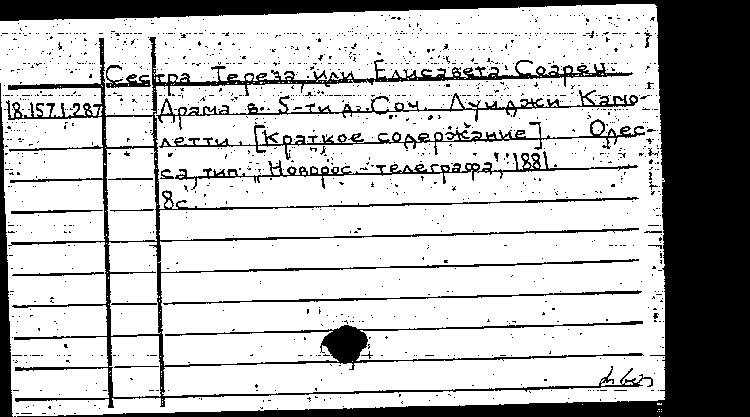 Сестра Тереза, или Елисавета Соарен.
18.157.1.287 Драма в 5-ти д. Соч. Луиджи Камо-
летти. [Краткое содержание]. Одес-
са, тип. „Новорос. телеграфа", 1881.
8с.